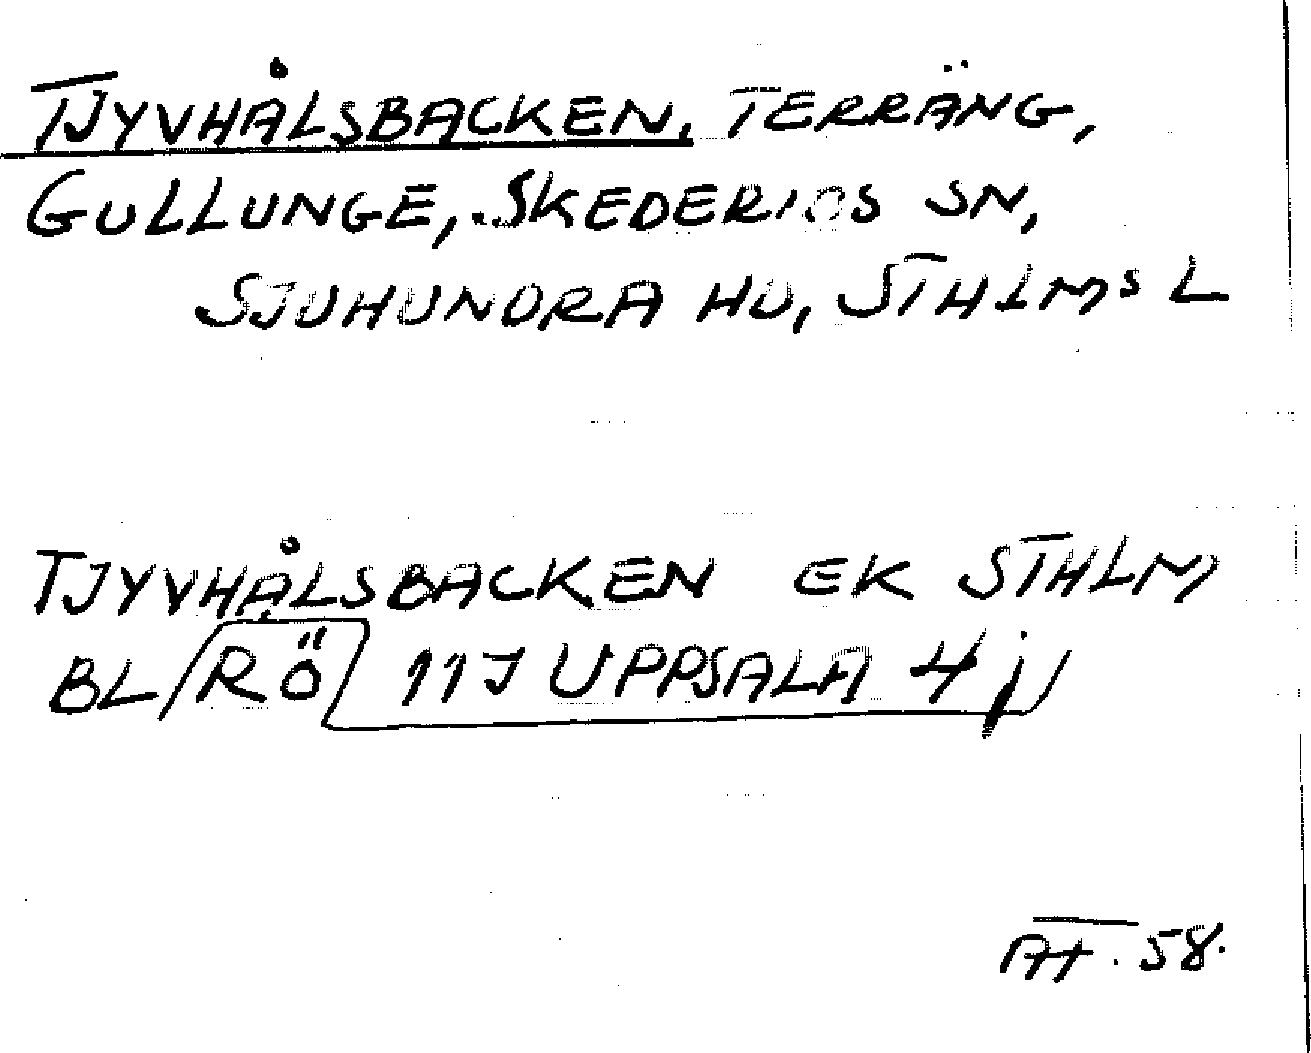 TJYVHÅLSBACKEN, TERRÄNG,
GULLUNGE, SKEDERIDS SN,
SJUHUNDRA HD, STHLMS L
TJYVHÅLSBACKEN EK STHLM
BL/RÖ 11J UPPSALA 4j
58.